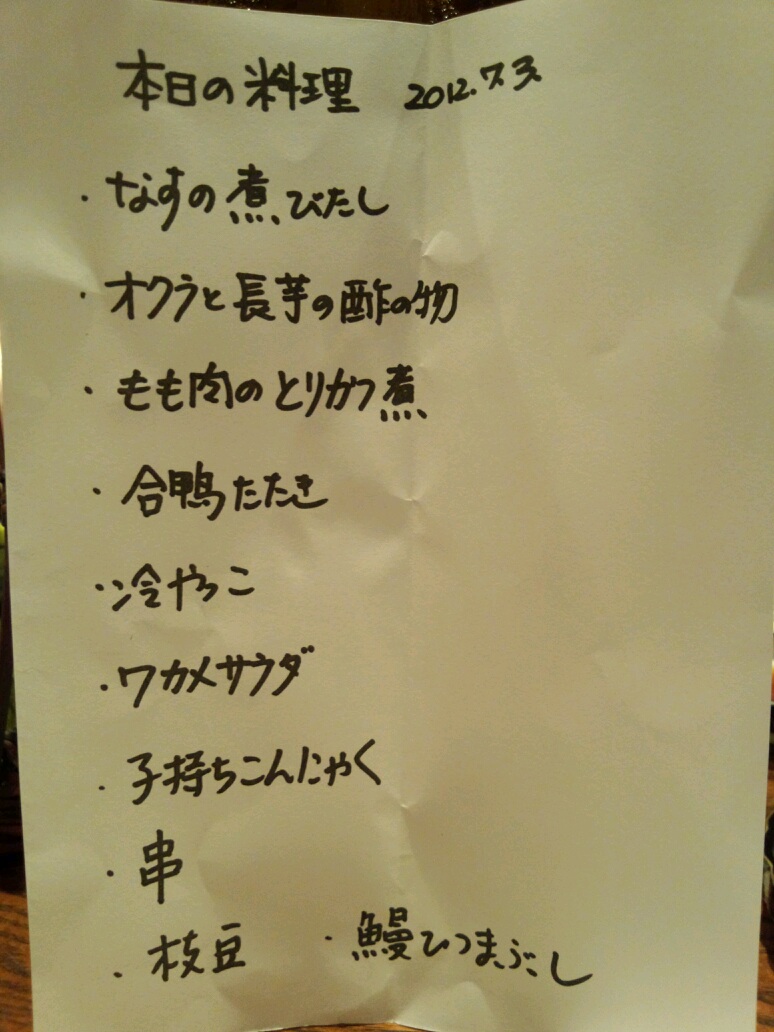 本日の料理 2012.7.3
・なすの煮びたし
・オクラと長芋の酢の物
・もも肉のとりかつ煮
・合鴨たたき
・冷やっこ
・ワカメサウダ
・子持ちこんにゃく
・串
・枝豆 ・鰻ひつまぶし